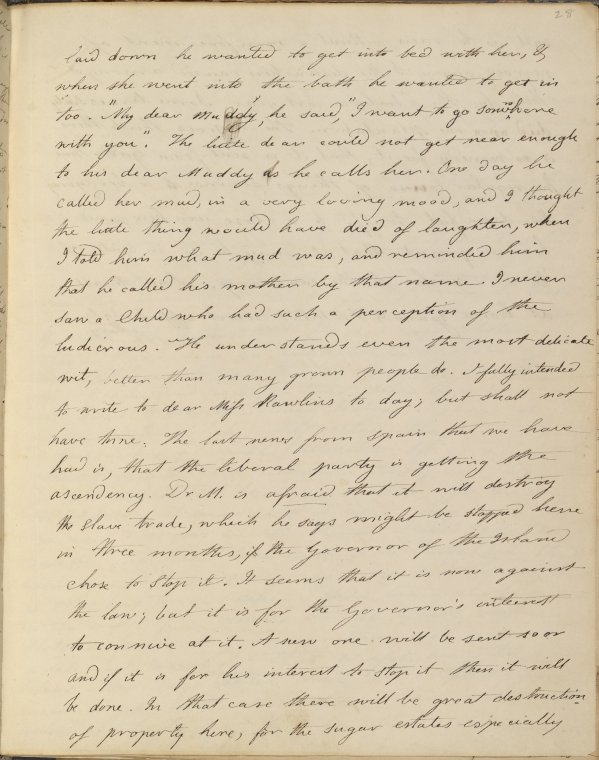 28
laid down he wanted to get into bed with her, &
when she went into the bath he wanted to get in
too. "My dear Muddy", he said, "I want to go somewhere
with you". The little dear could not get near enough
to his dear Muddy as he calls her. One day he
called her mud, in a very loving mood, and I thought
the little thing would have died of laughter, when
I told him what mud was, and reminded him
that he called his mother by that name. I never
saw a Child who had such a perception of the
ludicrous. He understands even the most delicate
wit, better than many grown people do. I fully intended
to write to dear Miss Rawlins to day; but shall not
have time. The last news from Spain that we have
had is, that the liberal party is getting the
ascendency. Dr M. is afraid that it will destroy
the slave trade, which he says might be stopped here
in three months, if the Governor of the Island
chose to stop it. It seems that it is now against
the law; but it is for the Governor's interest
to connive at it. A new one will be sent soon
and if it is for his interest to stop it then it will
be done. In that case there will be great destruction
of property here, for the sugar estates especially